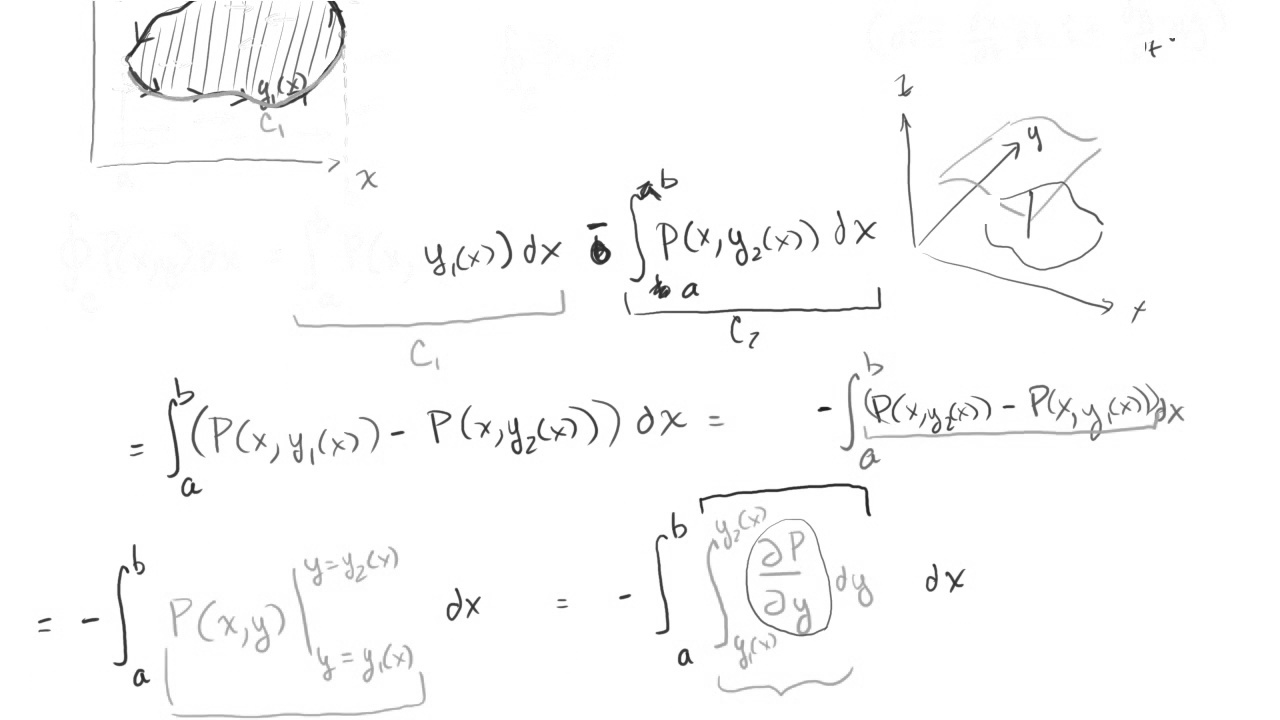 y₁(x)
C₁
x
z
y
x
y₁(x)) dx - ∫ₐᵇ P(x, y₂(x)) dx
C₁
C₂
= ∫ₐᵇ (P(x, y₁(x)) - P(x, y₂(x))) dx = - ∫ₐᵇ (P(x, y₂(x)) - P(x, y₁(x))) dx
= - ∫ₐᵇ P(x,y) | y=y₂(x) y=y₁(x) dx = - ∫ₐᵇ ∫ y₁(x) y₂(x) ∂P/∂y dy dx